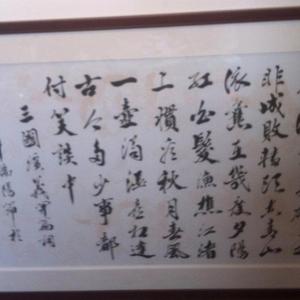 非成敗轉頭空青山
依舊在幾度夕陽
紅白髮漁樵江渚
上慣看秋月春風
一壺濁酒喜相逢
古今多少事都
付笑談中
三國演義開篇詞